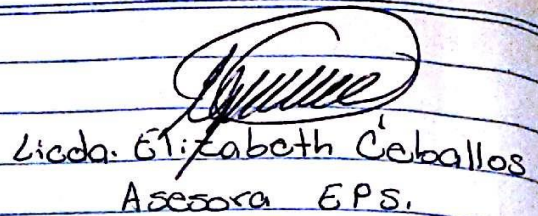 Licda. Elizabeth Ceballos
Asesora EPS.